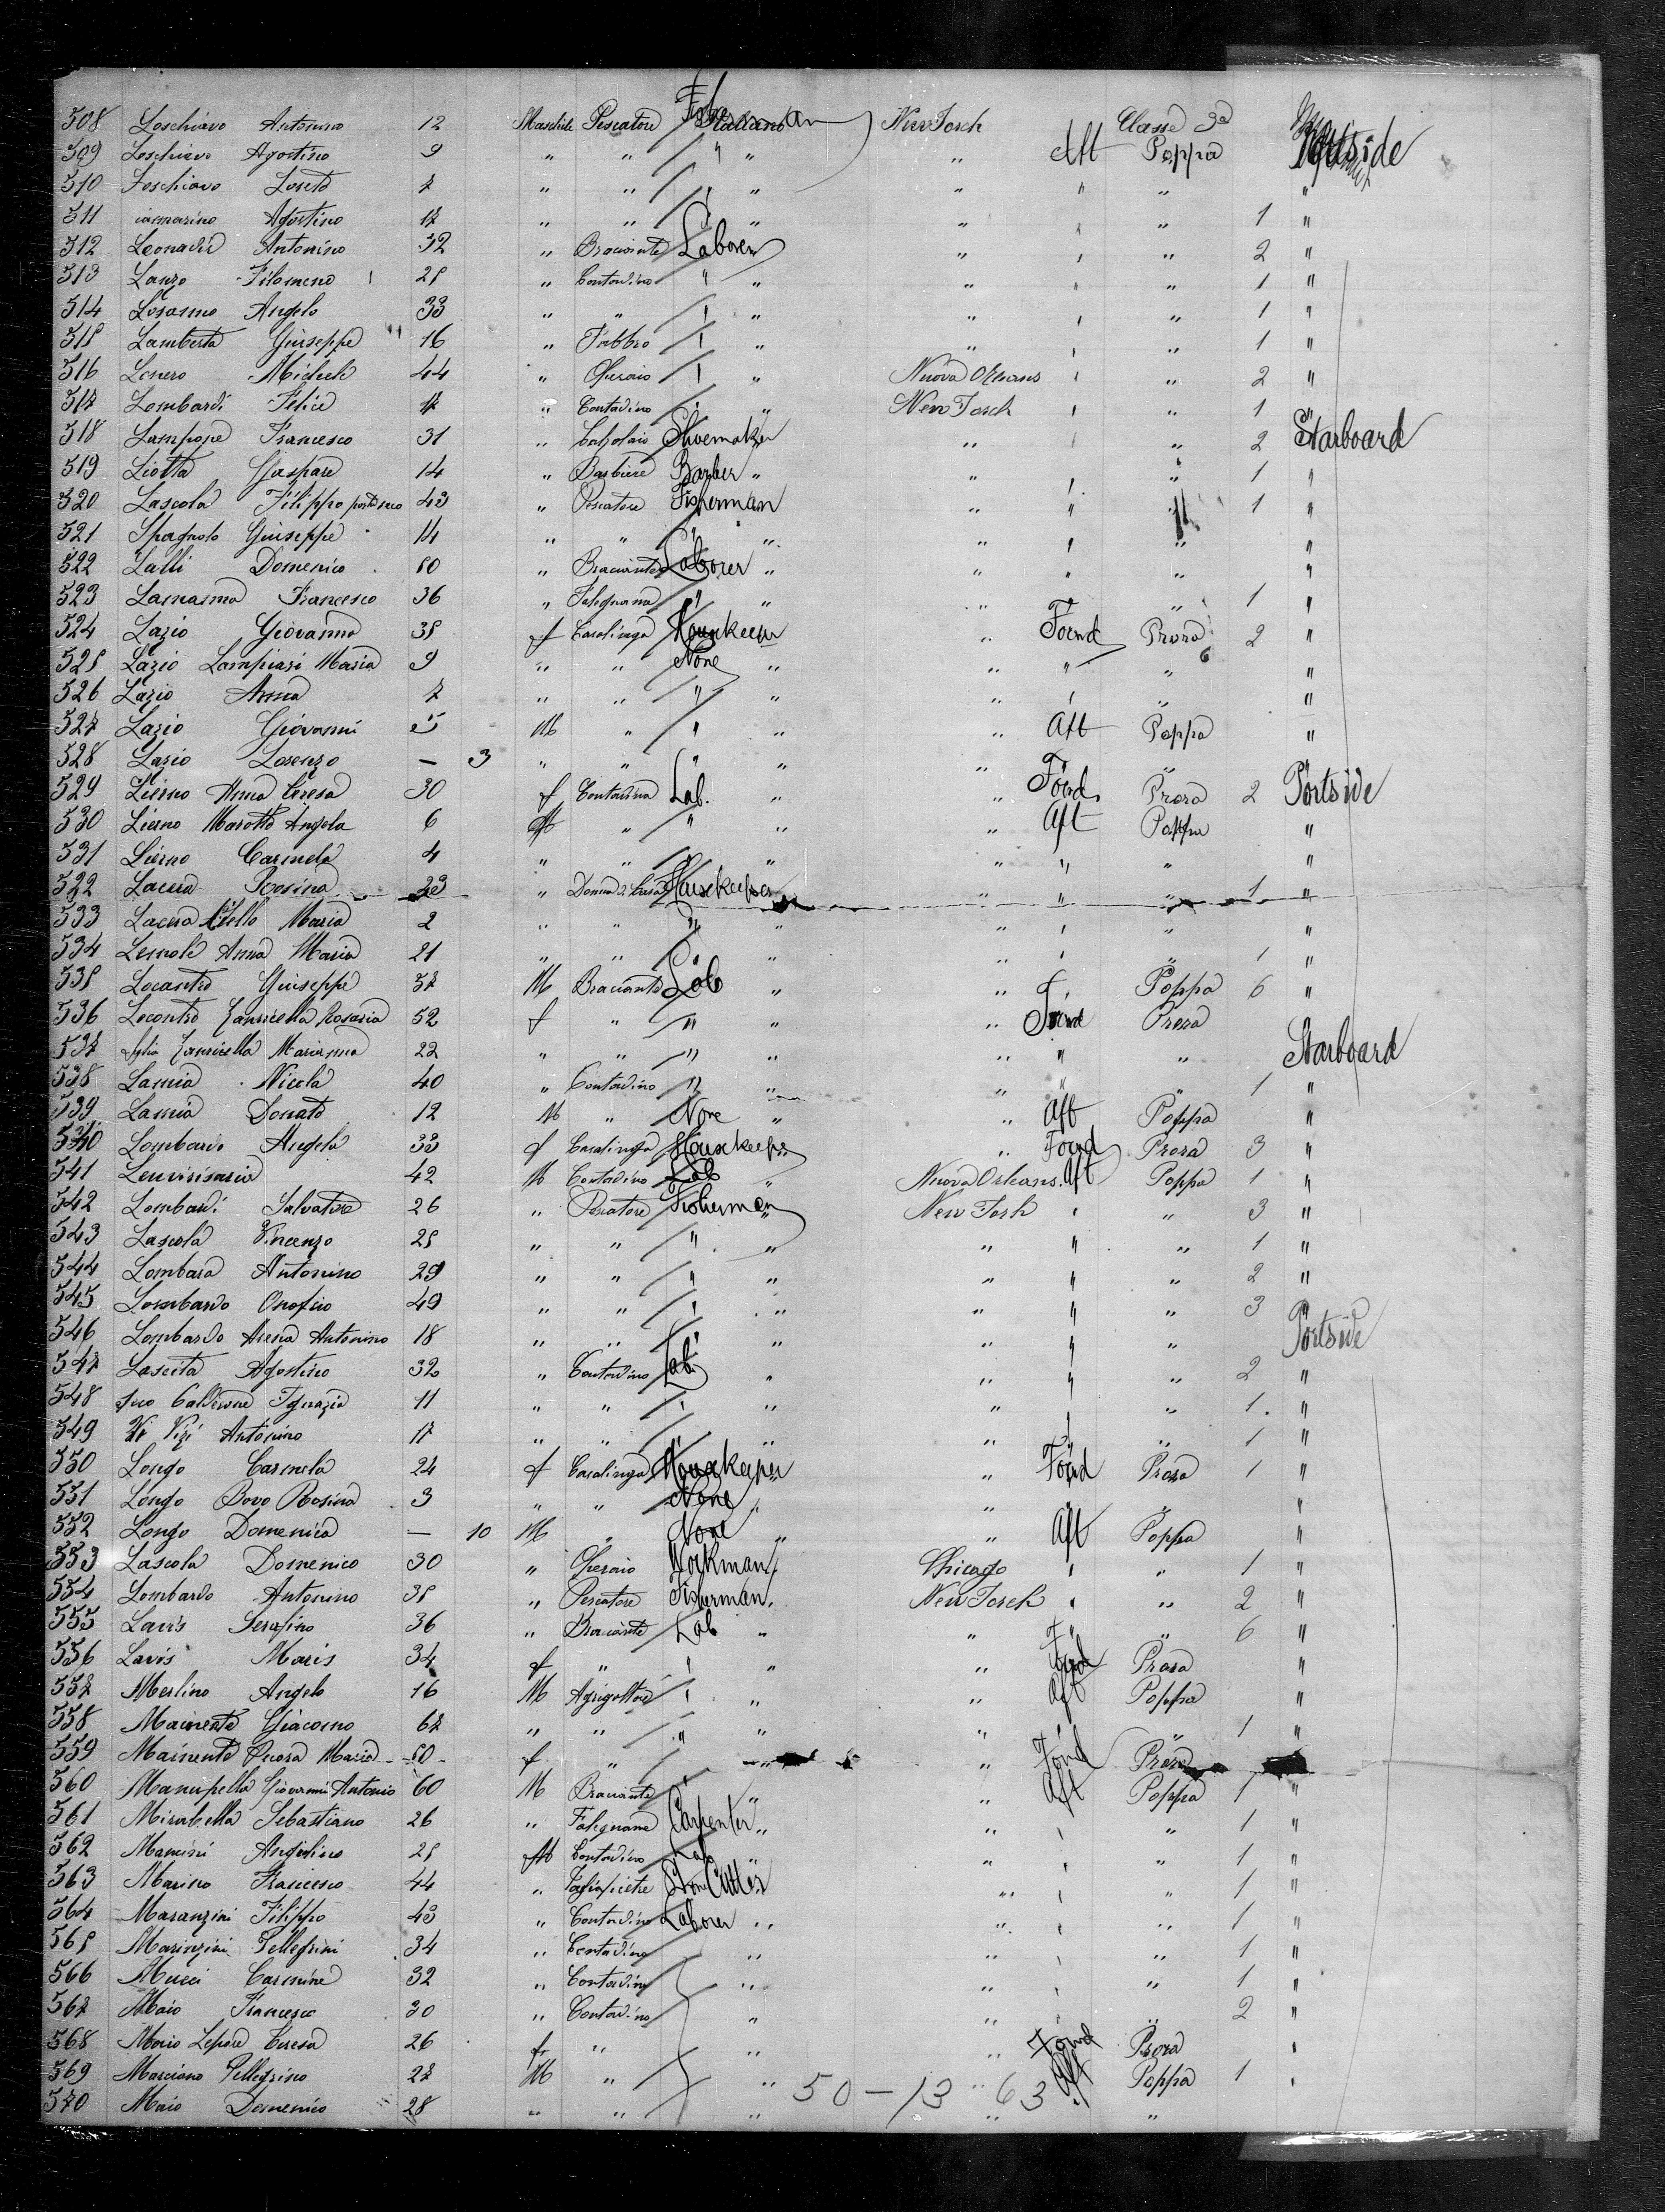 508 Loschiavo Antonino 12 Maschile Pescatore Fisherman Italiano New Jorch Classe 3a
509 Loschiavo Agostino 9 " " " " " Aft Poppa Portside
510 Loschiavo Loreto 7 " " " " " " " "
511 Agostino 17 " " " " " " " 1 "
512 Antonino 32 " Bracciante Laborer " " " 2 "
513 Lanzo Filomeno 25 " Contadino " " " " " 1 "
514 Losasmo Angelo 33 " " " " " " " 1 "
515 Lamberta Giuseppe 16 " Fabbro " " " " " 1 "
516 Lonero Michele 44 " Operaio " " Nuova Orleans " " 2 "
517 Lombardi Felice 17 " Contadino " " New Jorch " " 1 "
518 Lampope Francesco 31 " Calzolaio Shoemaker " " " 2 Starboard
519 Liotta Gaspare 14 " Barbiere Barber " " " " 1 "
520 Lascola Filippo 43 " Pescatore Fisherman " " " 1 "
521 Spagnolo Giuseppe 14 " " " " " " " "
522 Lalli Domenico 50 " Bracciante Laborer " " " " "
523 Lamanna Francesco 36 " Falegname " " " " " 1 "
524 Lazio Giovanna 35 f Casalinga Housekeeper " Forwd Prora 2 "
525 Lazio Lampiasi Maria 9 " " None " " " " "
526 Lazio Anna 7 " " " " " " " "
527 Lazio Giovanni 5 M " " " " Aft Poppa "
528 Lazio Lorenzo — 3 " " " " " " "
529 Lierno Anna Teresa 30 f Contadina Lab. " " Forwd Prora 2 Portside
530 Lierno Marotto Angela 6 " " " " Aft Poppa "
531 Lierno Carmela 4 " " " " " " " "
522 Lacera Rosina 23 " Donna di Casa Housekeeper " " " 1 "
533 Lacera Maria 2 " " " " " " " "
534 Anna Maria 21 " " " " " " " 1 "
535 Locantro Giuseppe 57 M Bracciante Lab " " " Poppa 6 "
536 Locontro Zanricella Rosaria 52 f " " " " Forwd Prora
537 Zanricella Marianna 22 " " " " " " " Starboard
538 Lamia Nicola 40 " Contadino " " " " " 1 "
539 Lamia Donato 12 M " None " " Aft Poppa "
540 Lombardo Angela 33 f Casalinga Housekeeper " Forwd Prora 3 "
541 42 M Contadino Lab " Nuova Orleans Aft Poppa 1 "
542 Lombardi Salvatore 26 " Pescatore Fisherman " New Jorh " " 3 "
543 Lascola Vincenzo 25 " " " " " " " 1 "
544 Lombara Antonino 29 " " " " " " " 2 "
545 Lombardo Onofrio 49 " " " " " " " 3 "
546 Lombardo Arena Antonino 18 " " " " " " " Portside
547 Lascita Agostino 32 " Contadino Lab " " " " 2 "
548 Calderone Ignazio 11 " " " " " " " 1 "
549 Antonino 17 " " " " " " " 1 "
550 Longo Carmela 24 f Casalinga Housekeeper " Forwd Prora 1 "
551 Longo Bovo Rosina 3 " " None " " " " "
552 Longo Domenico — 10 M " None " " Aft Poppa "
553 Lascola Domenico 30 " Operaio Workman Chicago " " 1 "
554 Lombardo Antonino 35 " Pescatore Fisherman New Jorch " " 2 "
555 Lavis Serafino 36 " Bracciante Lab " " " " 6 "
556 Lavis Maris 34 f " " " " Forwd Prora "
557 Merlino Angelo 16 M Agrigoltore " " " Aft Poppa "
558 Mainenta Giacomo 67 " " " " " " " 1 "
559 Mainenta Maria 50 f " " " " Forwd Prora
560 Manupella Giovanni Antonio 60 M Bracciante " " " Aft Poppa 1 "
561 Mirabella Sebastiano 26 " Falegname Carpenter " " " " 1 "
562 Mancini Angelino 25 M Contadino Lab " " " " 1 "
563 Marino Francesco 44 " Tagliapietre Stone Cutter " " " 1 "
564 Maranzini Filippo 43 " Contadino Laborer " " " " 1 "
565 Marinzini Pellegrini 34 " Contadino " " " " 1 "
566 Mucci Carmine 32 " Contadino " " " " 1 "
567 Maio Francesco 30 " Contadino " " " " 2 "
568 Maio Lepore Teresa 26 f " " " Forwd Prora "
569 Marciano Pellegrino 27 M " " " Aft Poppa 1 "
570 Maio Domenico 28 " " " " " "
50 – 13 63